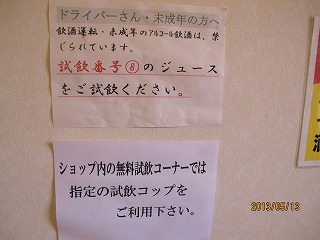 ドライバーさん・未成年の方へ
飲酒運転・未成年のアルコール飲酒は、禁
じられています。
試飲番号⑧のジュース
をご試飲ください。
ショップ内の無料試飲コーナーでは
指定の試飲コップを
ご利用下さい。
2013/05/13